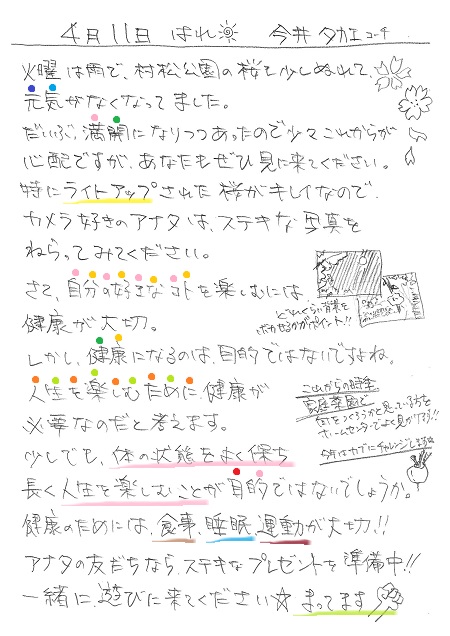 4月11日 はれ 今井 タカエ コーチ
火曜は雨で、村松公園の桜も少しぬれて、
元気がなくなってました。
だいぶ、満開になりつつあったので少々これからが
心配ですが、あなたもぜひ見に来てください。
特にライトアップされた桜がキレイなので、
カメラ好きのアナタは、ステキな写真を
ねらってみてください。
さて、自分の好きなコトを楽しむには、
健康が大切。
どれくらい背景を
ぼかせるかがポイント!!
しかし、健康になるのは、目的ではないですよね。
人生を楽しむために、健康が
必要なのだと考えます。
これからの時季
家庭菜園で
何をつくろうかと見ている方を
ホームセンターでよく見かけます!!
今年はカブにチャレンジします
少しでも、体の状態をよく保ち
長く人生を楽しむことが目的ではないでしょうか。
健康のためには、食事、睡眠、運動が大切!!
アナタの友だちなら、ステキなプレゼントを準備中!!
一緒に、遊びに来てください☆ まってます